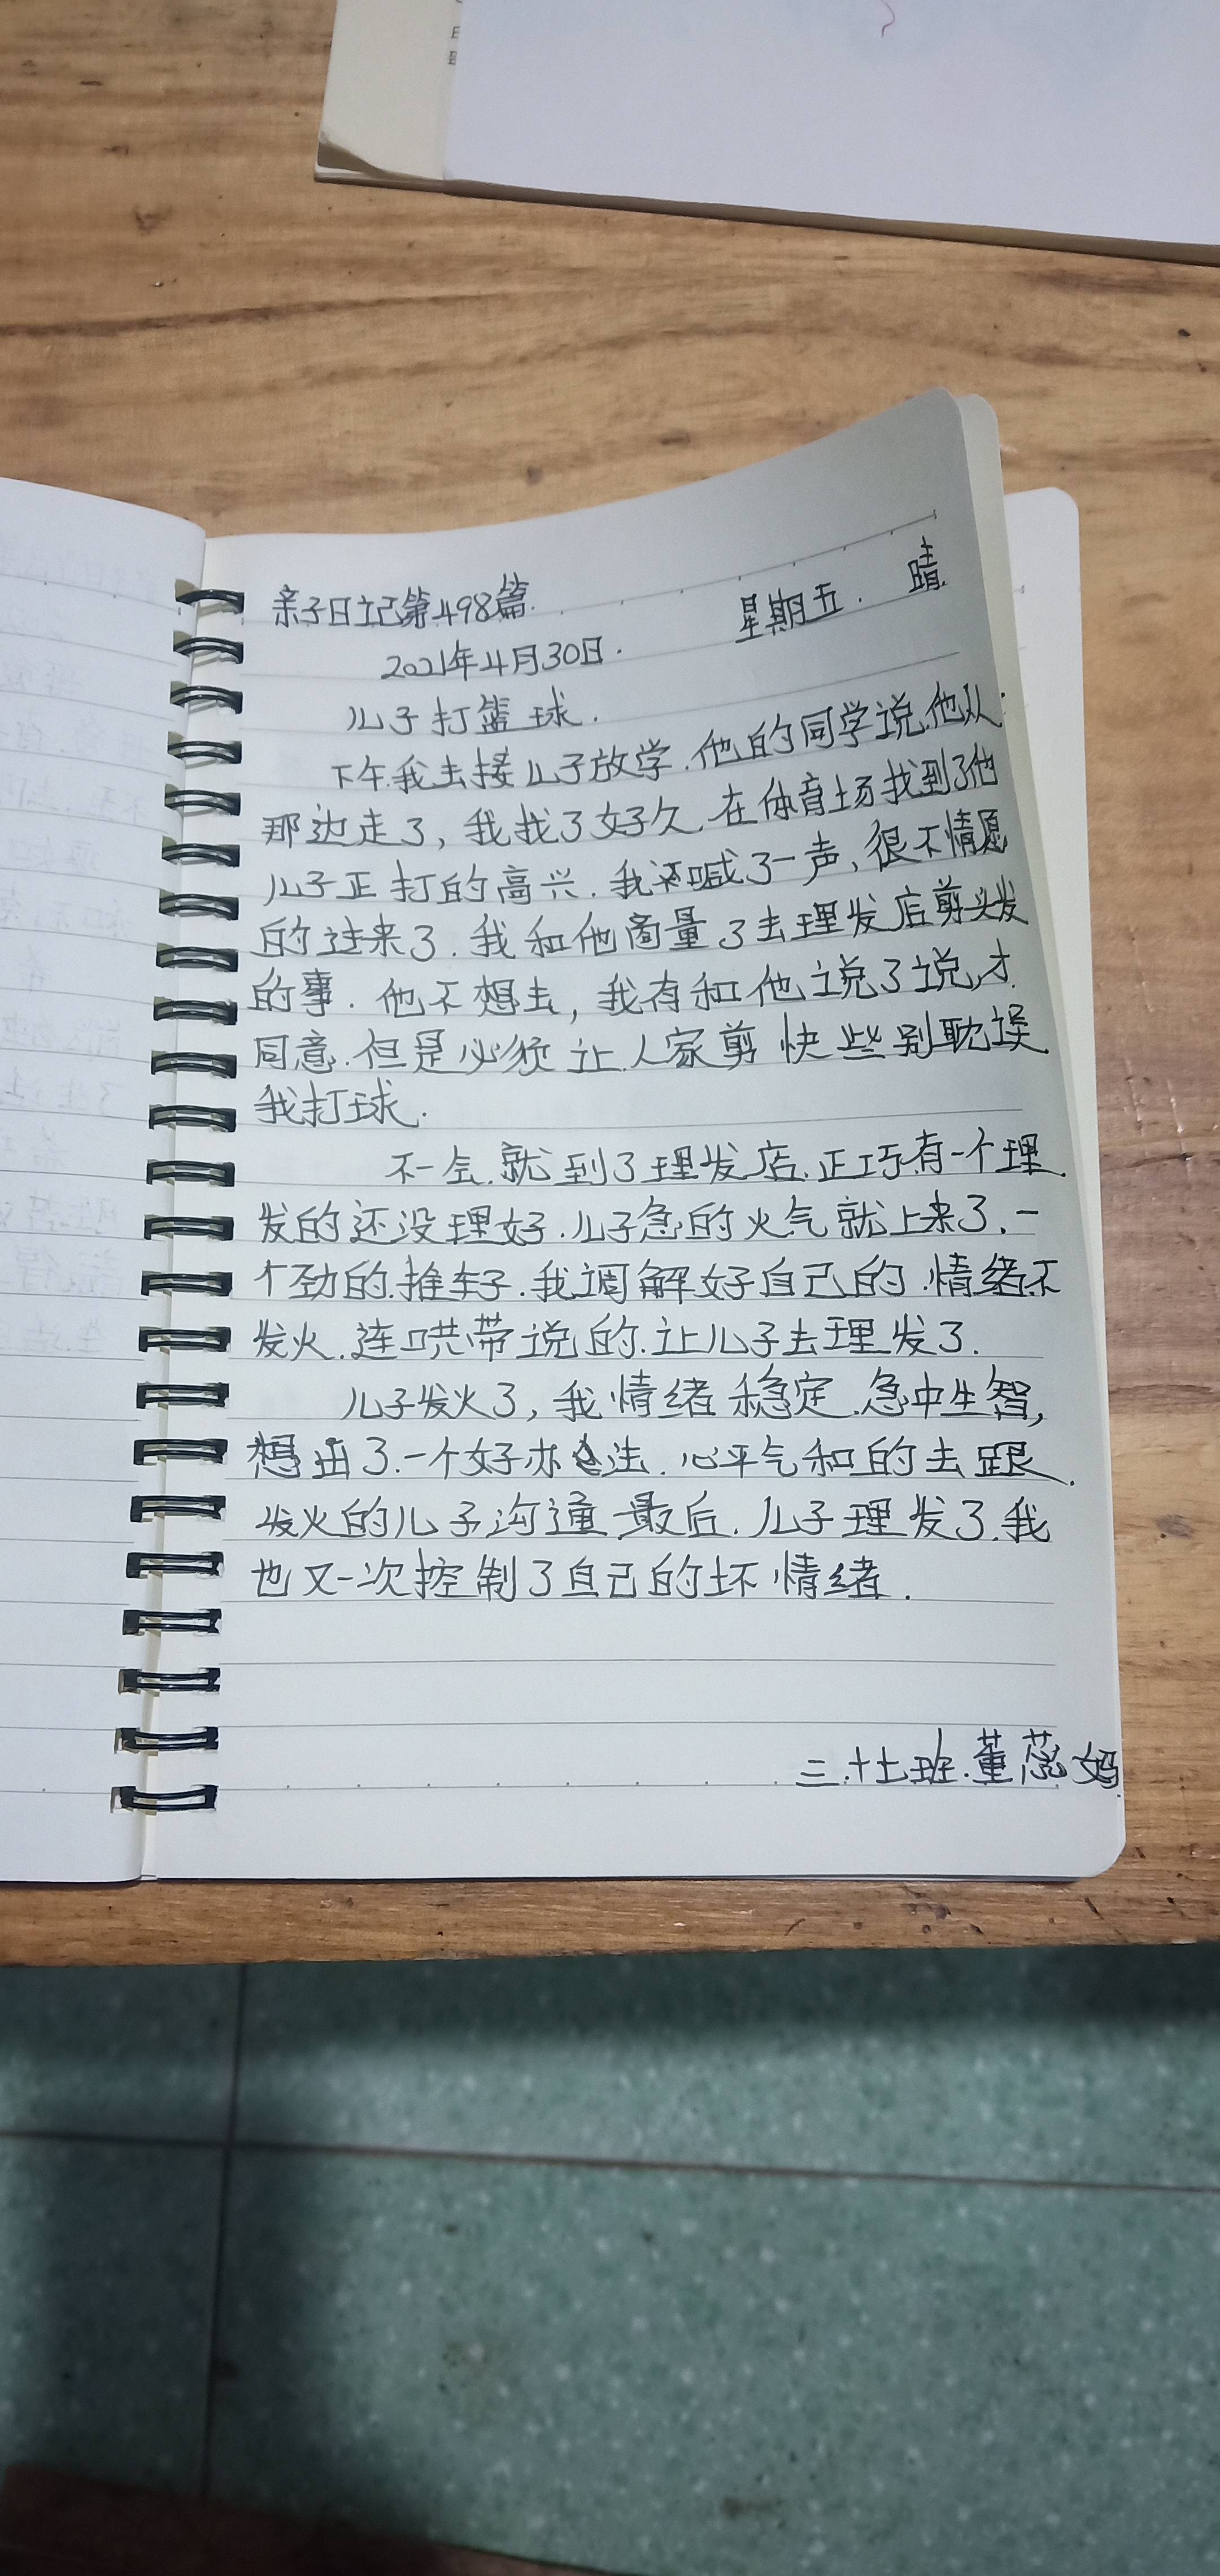 亲子日记第498篇.
2021年4月30日. 星期五. 晴.
儿子打篮球.
下午.我去接儿子放学.他的同学说.他从
那边走了,我找了好久.在体育场找到了他
儿子正打的高兴.我还喊了一声,很不情愿
的过来了.我和他商量了去理发店剪头发
的事.他不想去,我有和他说了说,才
同意.但是必须让人家剪快些别耽误
我打球.
不一会.就到了理发店.正巧有一个理
发的还没理好.儿子急的火气就上来了.一
个劲的.推车子.我调解好自己的.情绪不
发火.连哄带说的.让儿子去理发了.
儿子发火了,我情绪稳定.急中生智,
想出了.一个好办法.心平气和的去跟
发火的儿子沟通.最后.儿子理发了.我
也又一次控制了自己的坏情绪.
三.十七班.董蕊妈